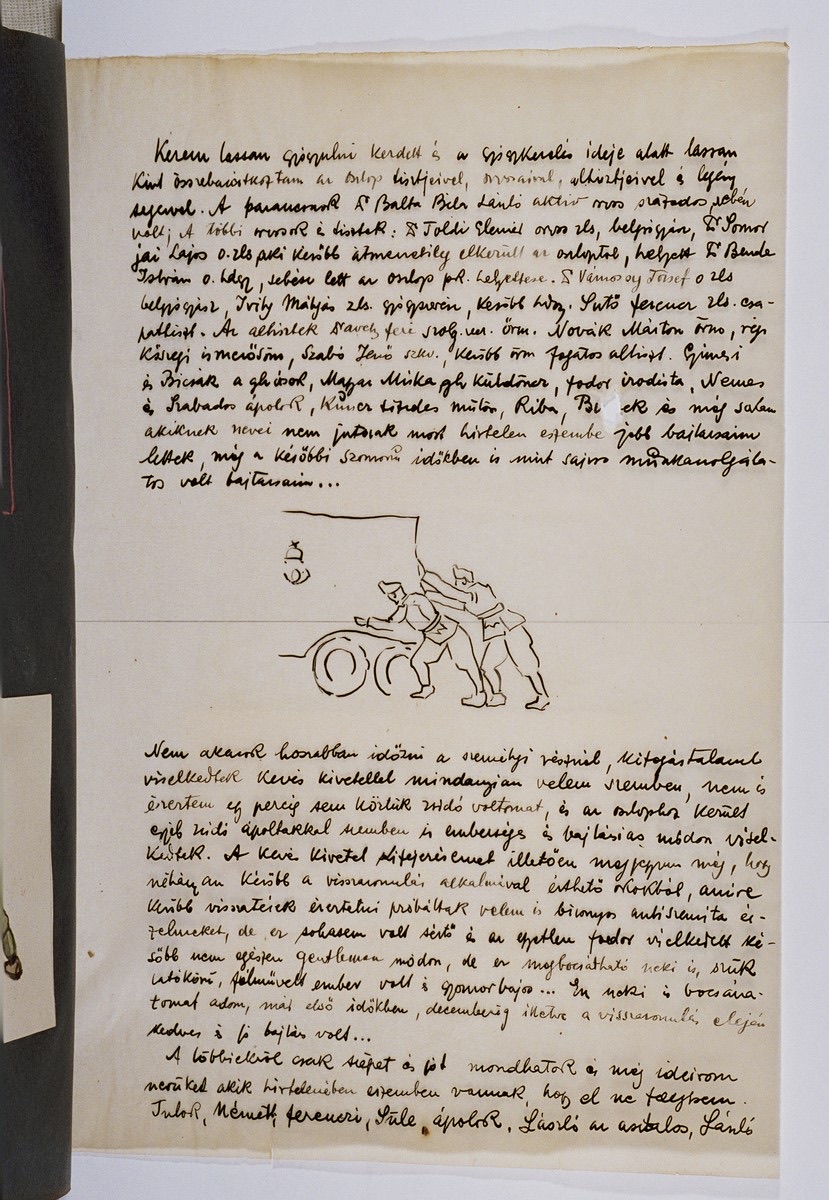 Kezem lassan gyógyulni kezdett és a gyógykezelés ideje alatt lassan
kint összebarátkoztam az oszlop tisztjeivel, orvosaival, altisztjeivel és legény
ségével. A parancsnok Dr Balta Béla László aktiv orvos százados
volt; A többi orvosok és tisztek: Dr Toldi Elemér orvos zls, belgyógyász, Dr Somor
jai Lajos o. zls aki később átmenetileg elkerült az oszloptól, helyett Dr Bende
István o. hdgy, sebész lett az oszlop pk. helyettese. Dr Vámossy József o zls
belgyógyász, Ivity Mátyás zls. gyógyszerész, később hdgy. Sütő Ferenc zls. csa-
pattiszt. Az altisztek feri szolg. vez. őrm. Novák Márton őrm, régi
Kőszegi ismerősöm, Szabó Jenő szkv., később őrm fogatos altiszt. Gimesi
és Bicsák a gh-sok, Magyar Miska gh küldönc, Fodor irodista, Nemes
és Szabados ápolók, Kuncz tizedes műtős, Riba, és még sokan
akiknek nevei nem jutnak most hirtelen eszembe jobb bajtársaim
lettek, még a későbbi szomorú időkben is mint sajnos munkaszolgála-
tos volt bajtársaim...
Nem akarok hosszabban időzni a személyi résznél, kifogástalanul
viselkedtek kevés kivétellel mindannyian velem szemben, nem is
éreztem egy percig sem köztük zsidó voltomat, és az oszlophoz került
egyéb zsidó ápoltakkal szemben is emberséges és bajtársias módon visel-
kedtek. A kevés kivétel kifejezésemet illetően megjegyzem még, hogy
néhányan később a visszavonulás alkalmával érthető okokból, amire
később visszatérek éreztetni próbáltak velem is bizonyos antiszemita ér-
zelmeket, de ez sohasem volt sértő és az egyetlen Fodor viselkedett ké-
sőbb nem egészen gentleman módon, de ez megbocsátható neki is, szűk
látókörű, félművelt ember volt és gyomorbajos... Én neki is bocsána-
tomat adom, már első időkben, decemberig illetve a visszavonulás elején
kedves és jó bajtárs volt...
A többiekről csak szépet és jót mondhatok és még ideirom
nevüket akik hirtelenében eszemben vannak, hogy el ne felejtsem.
Tulok, Németh, Ferenczi, Süle, ápolók, László az asztalos, László